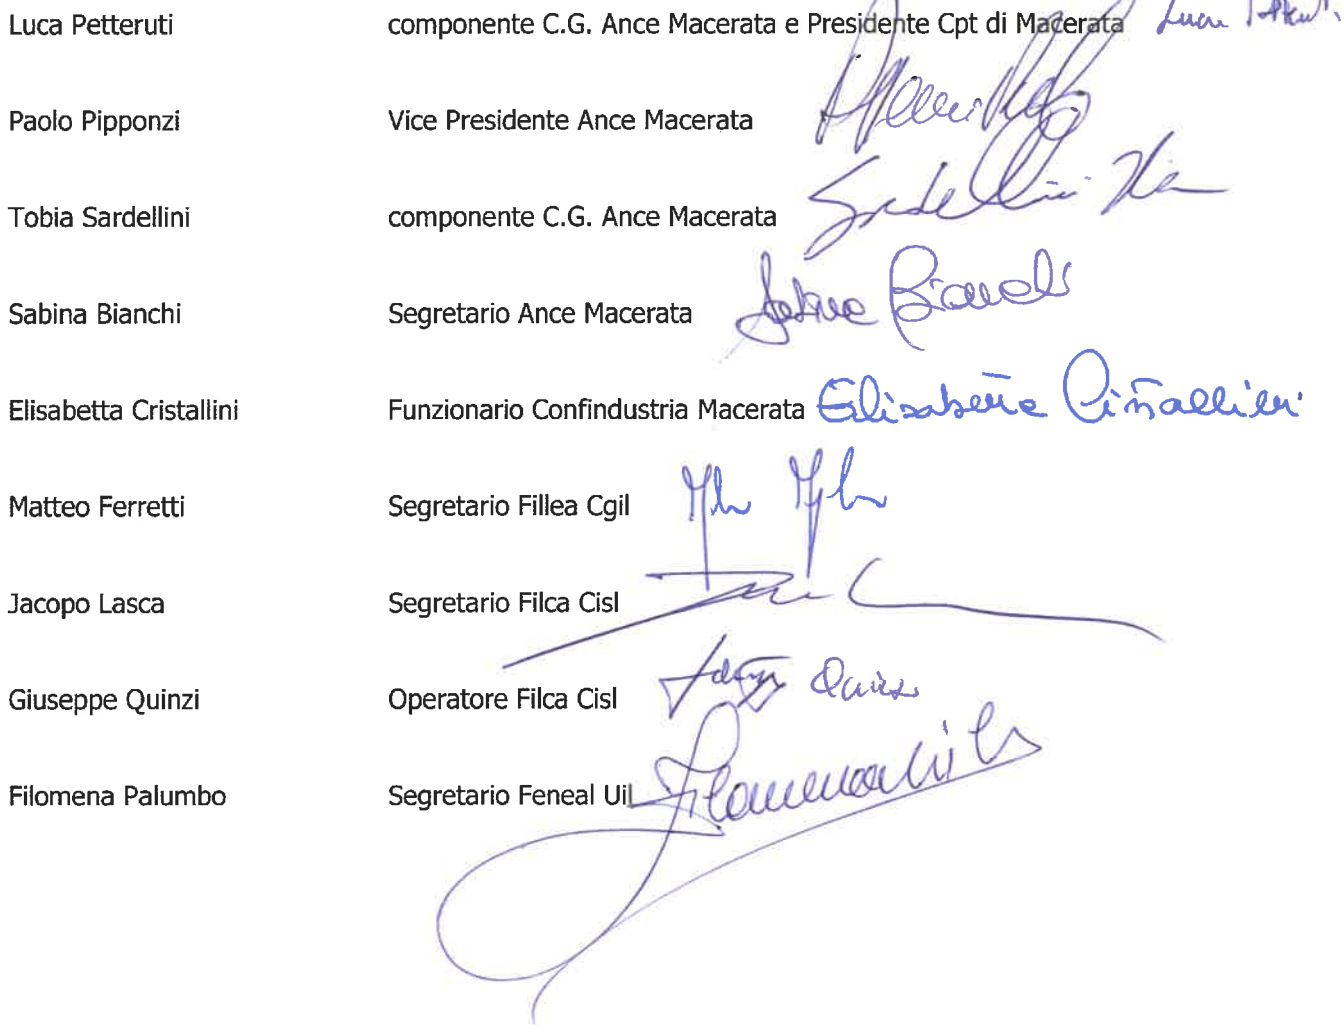 Luca Petteruti componente C.G. Ance Macerata e Presidente Cpt di Macerata Luca
Paolo Pipponzi Vice Presidente Ance Macerata
Tobia Sardellini componente C.G. Ance Macerata Sardellini
Sabina Bianchi Segretario Ance Macerata Sabina Bianchi
Elisabetta Cristallini Funzionario Confindustria Macerata Elisabetta Cristallini
Matteo Ferretti Segretario Fillea Cgil
Jacopo Lasca Segretario Filca Cisl
Giuseppe Quinzi Operatore Filca Cisl Quinzi
Filomena Palumbo Segretario Feneal Uil